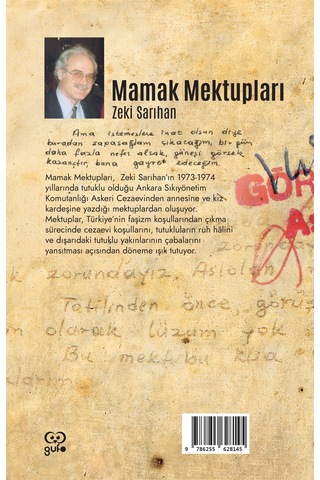 Mamak Mektupları
Zeki Sarıhan
Ama istemezlere inat olsun diye
buradan sapasağlam çıkacağım, bir gün
daha fazla nefes almak, güneşi görmek
kazançtır, buna gayret edeceğim.
Mamak Mektupları, Zeki Sarıhan'ın 1973-1974
yıllarında tutuklu olduğu Ankara Sıkıyönetim
Komutanlığı Askeri Cezaevinden annesine ve kız
kardeşine yazdığı mektuplardan oluşuyor.
Mektuplar, Türkiye'nin faşizm koşullarından çıkma
sürecinde cezaevi koşullarını, tutukluların ruh hâlini
ve dışarıdaki tutuklu yakınlarının çabalarını
yansıtması açısından döneme ışık tutuyor.
GÖR
As
zorundayız. Aslolan
Tatilinden önce, görüş
olarak lüzum yok
Bu mektubu kısa
gufo
9 786255 628145